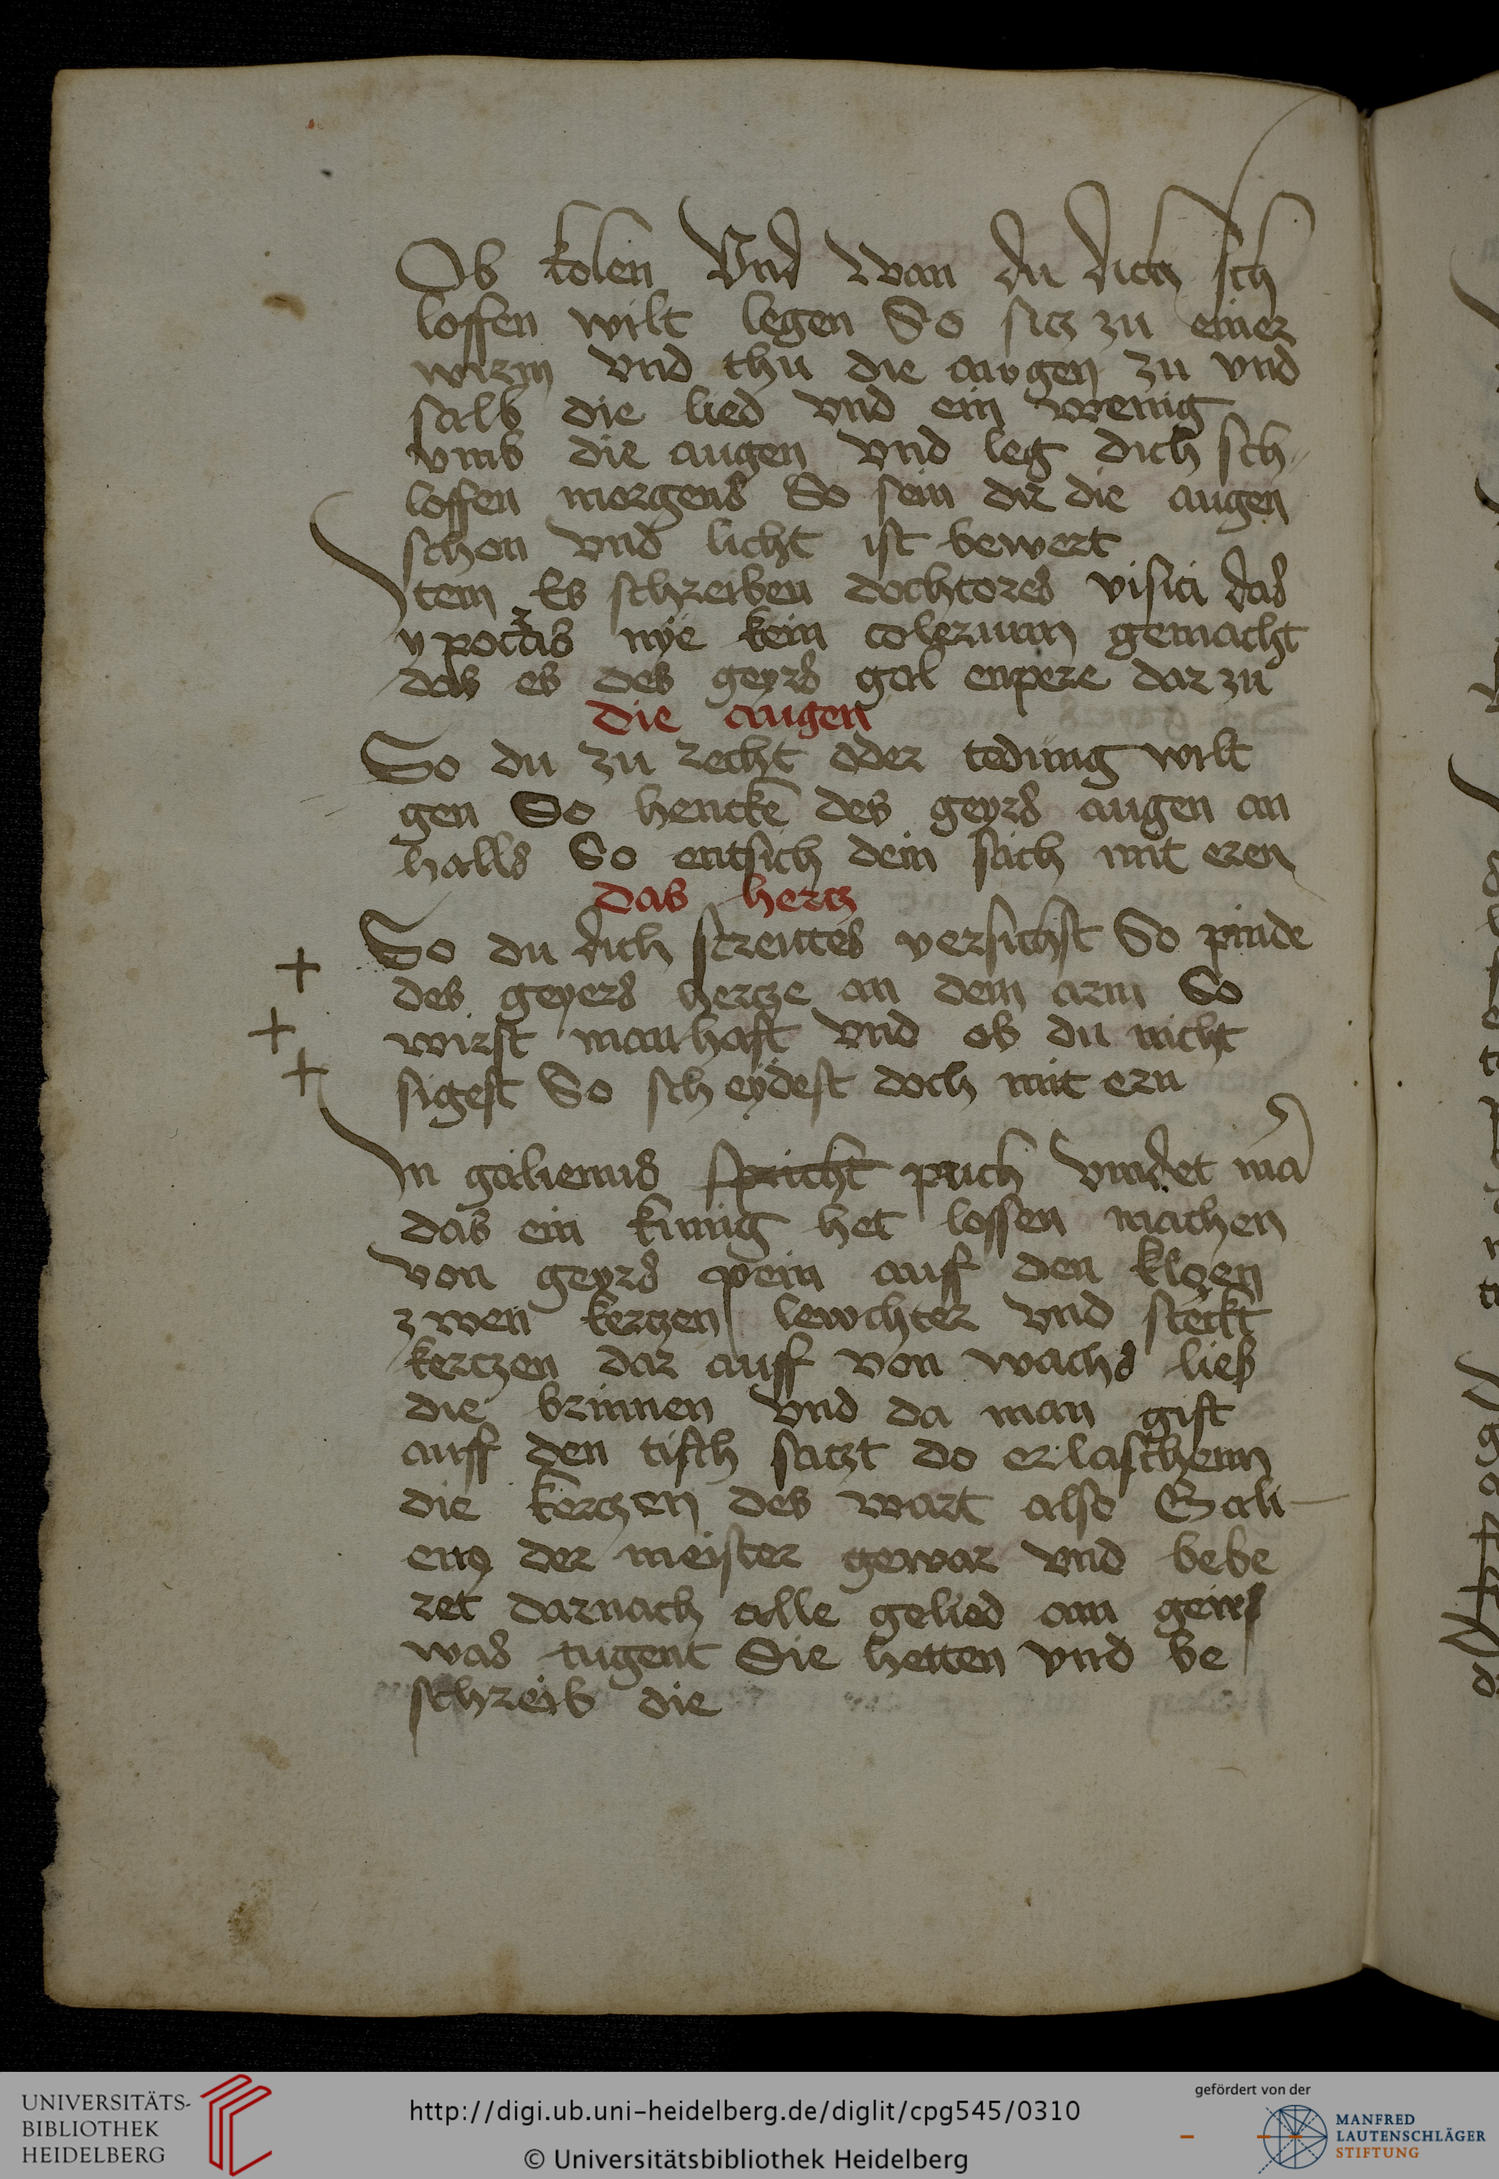 Ob kolen Vnd Wan du dich sch
loffen wilt legen So sitz zu einer
wirm vnd thu die augen zu vnd
salb die lied vnd ein wenig
vmb die augen vnd leg dich sch
loffen morgens So sein dir die augen
schon vnd licht ist bewert
Item Es schreiben dochtores visici das
ypocras nye kein colerium gemacht
das es des geyrs gal enpere dar zu
die augen
So du zu recht oder teding wilt
gen So hencke des geyrs augen an
halls So entsich dein sach mit eren
das hertz
So du dich streites versichst So pinde
des geyers hertze an dem arm So
wirst manhaft vnd ob du nicht
sigest So scheydest doch mit ern
In galienus spricht puch vindet mā
das ein kunig het lossen machen
von geyrs pein auf den kloen
zwen kertzen lewchter vnd steckt
kertzen dar auff von wachs ließ
die brinnen vnd da man gift
auff den tisch satzt do erlaschenn
die kertzen des wart also Gali
enꝰ der meister gewar vnd bebe
ret darnach alle gelied am geirs
was tugent Sie hetten vnd be
schreib die
UNIVERSITÄTS-
BIBLIOTHEK
HEIDELBERG
http://digi.ub.uni-heidelberg.de/diglit/cpg545/0310
© Universitätsbibliothek Heidelberg
gefördert von der
MANFRED
LAUTENSCHLÄGER
STIFTUNG